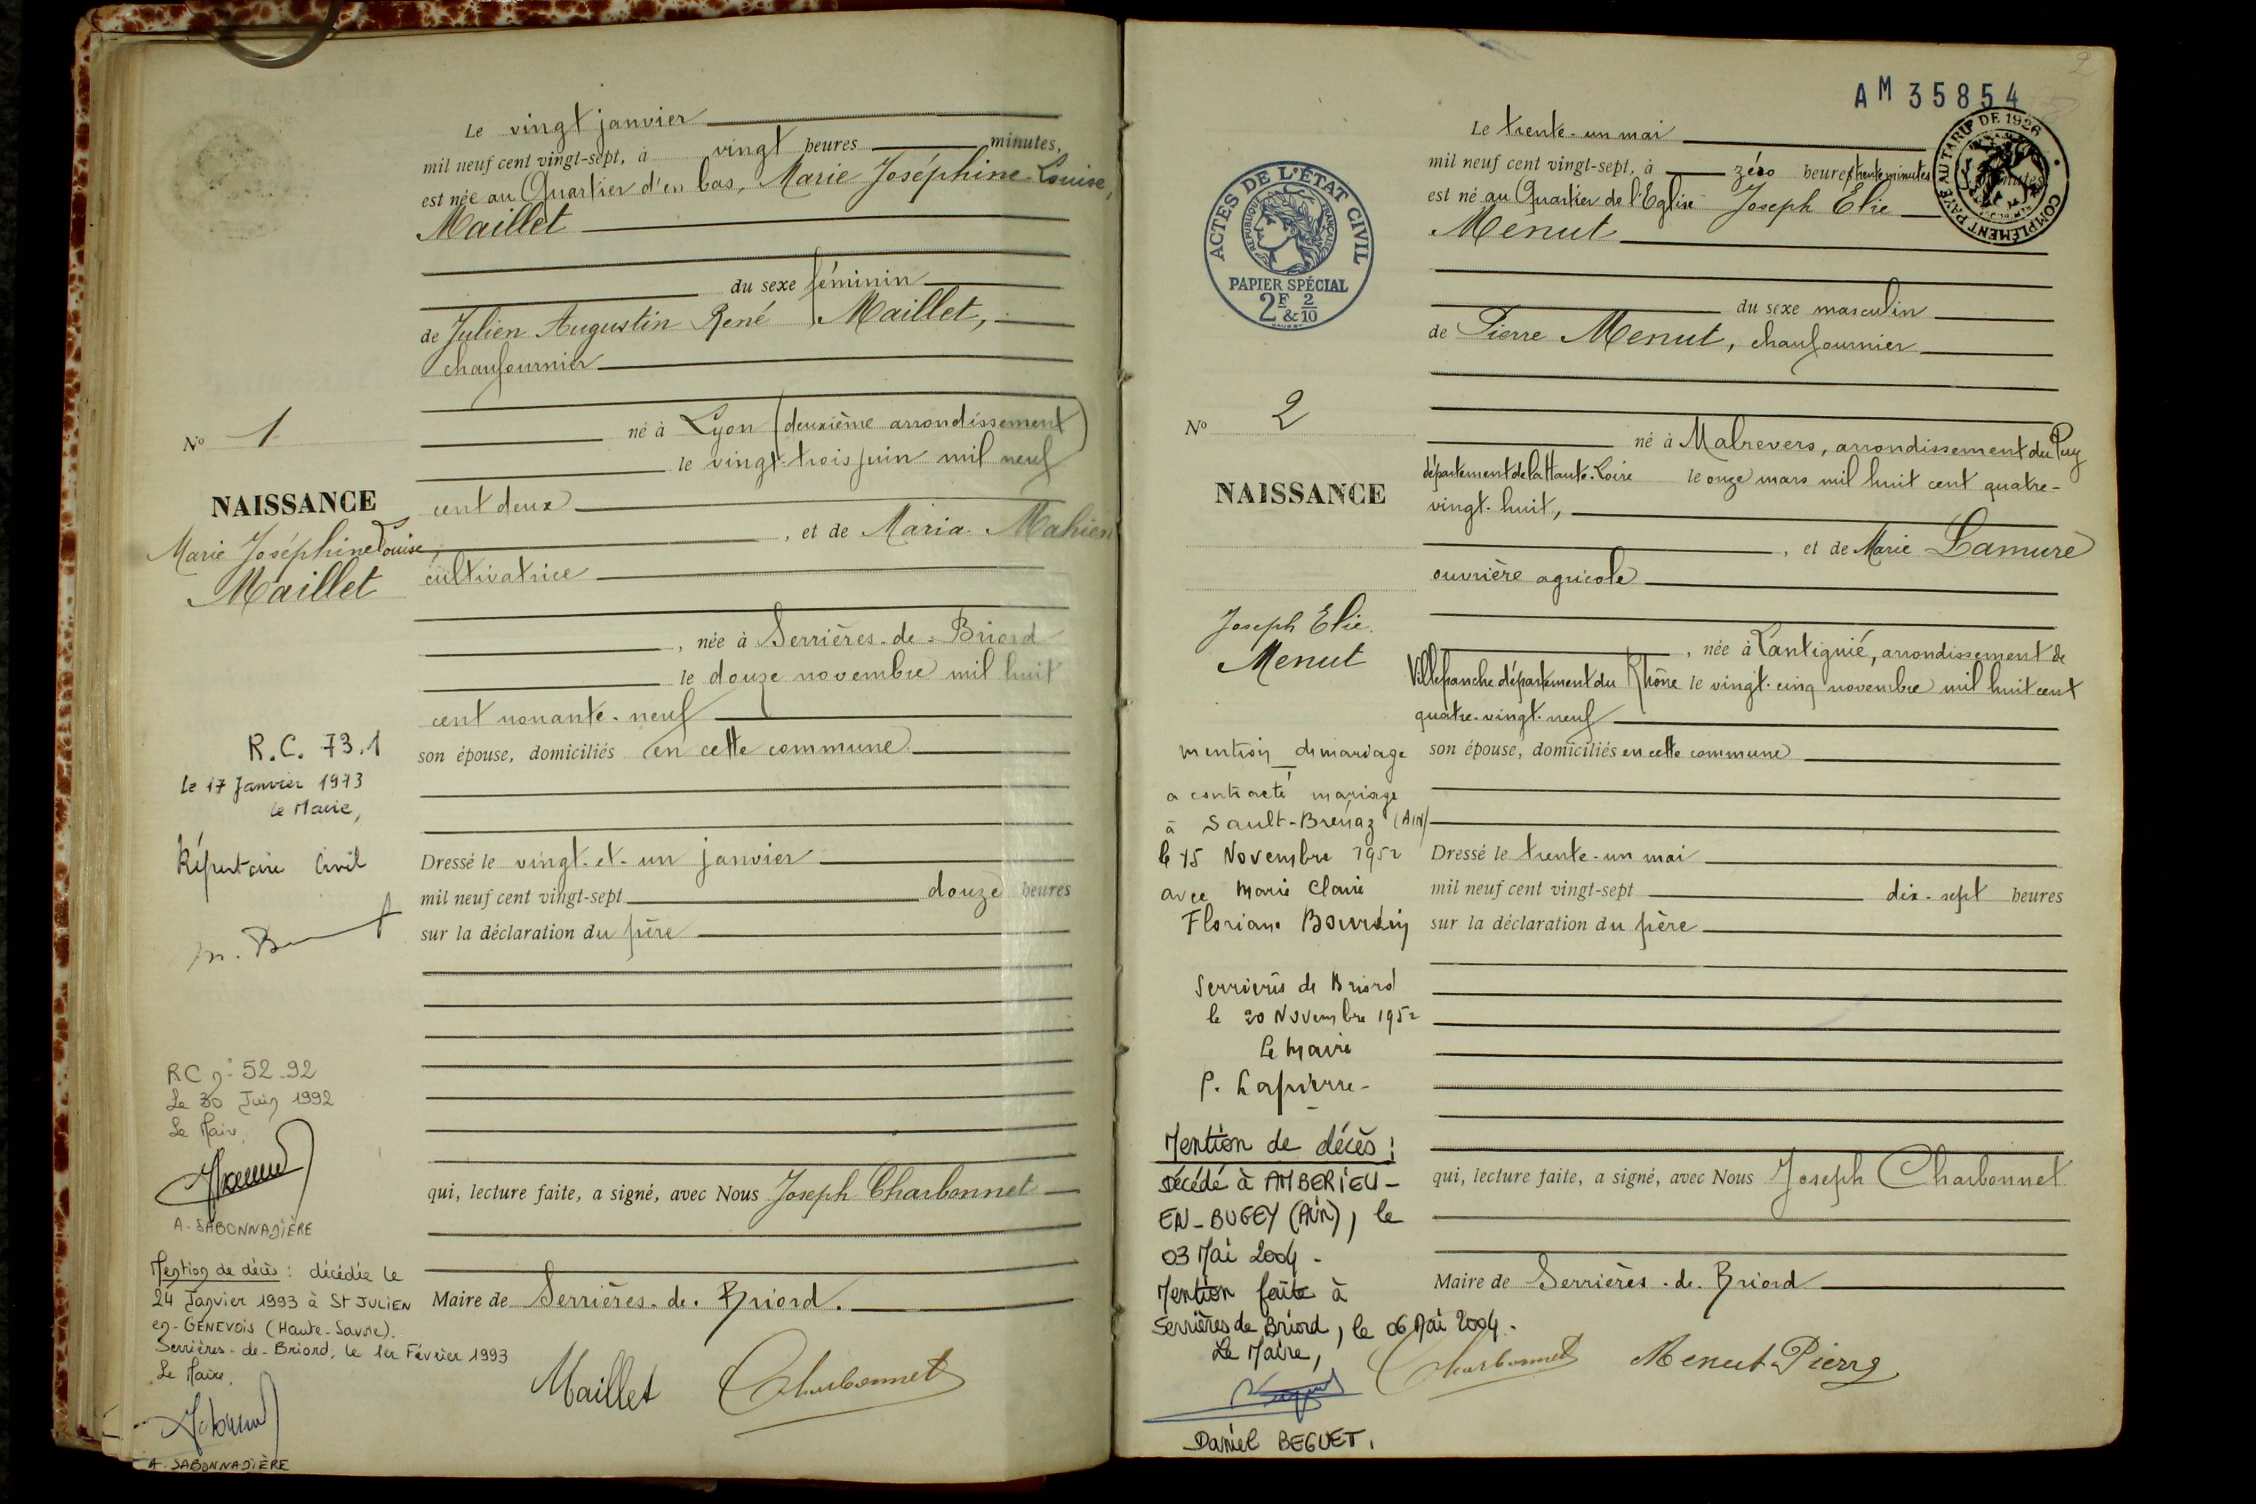 Le vingt janvier
mil neuf cent vingt-sept, à vingt heures minutes,
est née au Quartier d'en bas, Marie Joséphine Louise,
Maillet
du sexe féminin
de Julien Augustin René Maillet,
chaufournier
né à Lyon (deuxième arrondissement)
le vingt-trois juin mil neuf
cent deux
, et de Maria Mahien
cultivatrice
, née à Serrières-de-Briord
le douze novembre mil huit
cent nonante-neuf
son épouse, domiciliés en cette commune
Dressé le vingt-et-un janvier
mil neuf cent vingt-sept douze heures
sur la déclaration du père
qui, lecture faite, a signé, avec Nous Joseph Charbonnet
Maire de Serrières-de-Briord.
Maillet Charbonnet
No 1
NAISSANCE
Marie Joséphine Louise,
Maillet
R.C. 73.1
le 17 Janvier 1973
le Maire,
Répertoire Civil
RC n° 52.92
Le 30 Juin 1992
Le Maire,
A. SABONNADIÈRE
Mention de décès : décédée le
24 Janvier 1993 à St JULIEN
en-GENEVOIS (Haute-Savoie).
Serrières-de-Briord, le 1er Février 1993
Le Maire,
A. SABONNADIÈRE
2
AM 35854
COMPLÉMENT PAYÉ AU TARIF DE 1926
ACTES DE L'ÉTAT CIVIL
RÉPUBLIQUE FRANÇAISE
PAPIER SPÉCIAL
2F & 2/10
Le trente-un mai
mil neuf cent vingt-sept, à zéro heures trente minutes
est né au Quartier de l'Eglise Joseph Elie
Menut
du sexe masculin
de Pierre Menut, chaufournier
né à Malrevers, arrondissement du Puy
département de la Haute-Loire le onze mars mil huit cent quatre-
vingt-huit,
, et de Marie Lamure
ouvrière agricole
, née à Lantignié, arrondissement de
Villefranche département du Rhône le vingt-cinq novembre mil huit cent
quatre-vingt-neuf
son épouse, domiciliés en cette commune
Dressé le trente-un mai
mil neuf cent vingt-sept dix-sept heures
sur la déclaration du père
qui, lecture faite, a signé, avec Nous Joseph Charbonnet
Maire de Serrières-de-Briord
Charbonnet Menut Pierre
No 2
NAISSANCE
Joseph Elie
Menut
mention de mariage
a contracté mariage
à Sault-Brénaz (AIN)
le 15 Novembre 1952
avec Marie Claire
Floriane
Serrières de Briord
le 20 Novembre 1952
Le Maire
P. Lapierre
Mention de décès :
Décédé à AMBERIEU-
EN-BUGEY (AIN), le
03 Mai 2004.
Mention faite à
Serrières de Briord, le 06 Mai 2004.
Le Maire,
Daniel BEGUET.